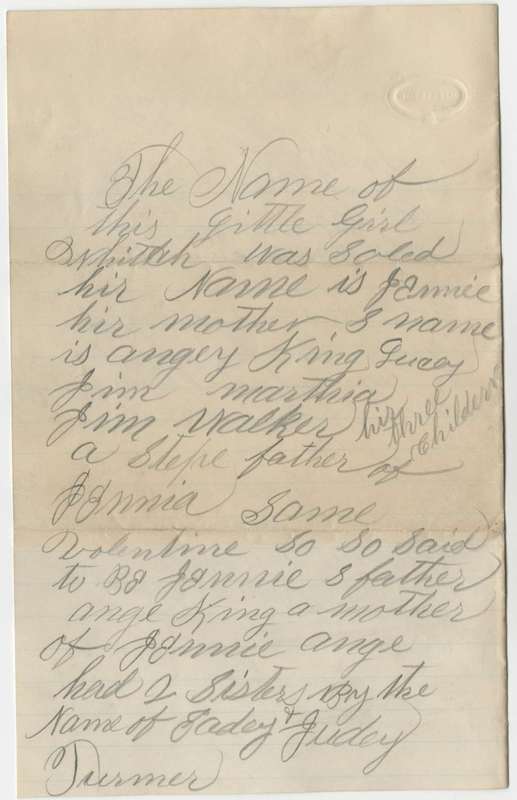 The Name of
this Little Girl
Whitch was Soled
hir Name is JEnnie
hir mother s name
is angey King Lucey
Jim marthia
Jim Walker hir three Childern
a Stepe father of
JEnnia Same
Valentine So So Said
to BE JEnnie s father
ange King a mother
of JEnnie ange
had 2 Sisters By the
Name of Eadey & Judey
Turmer